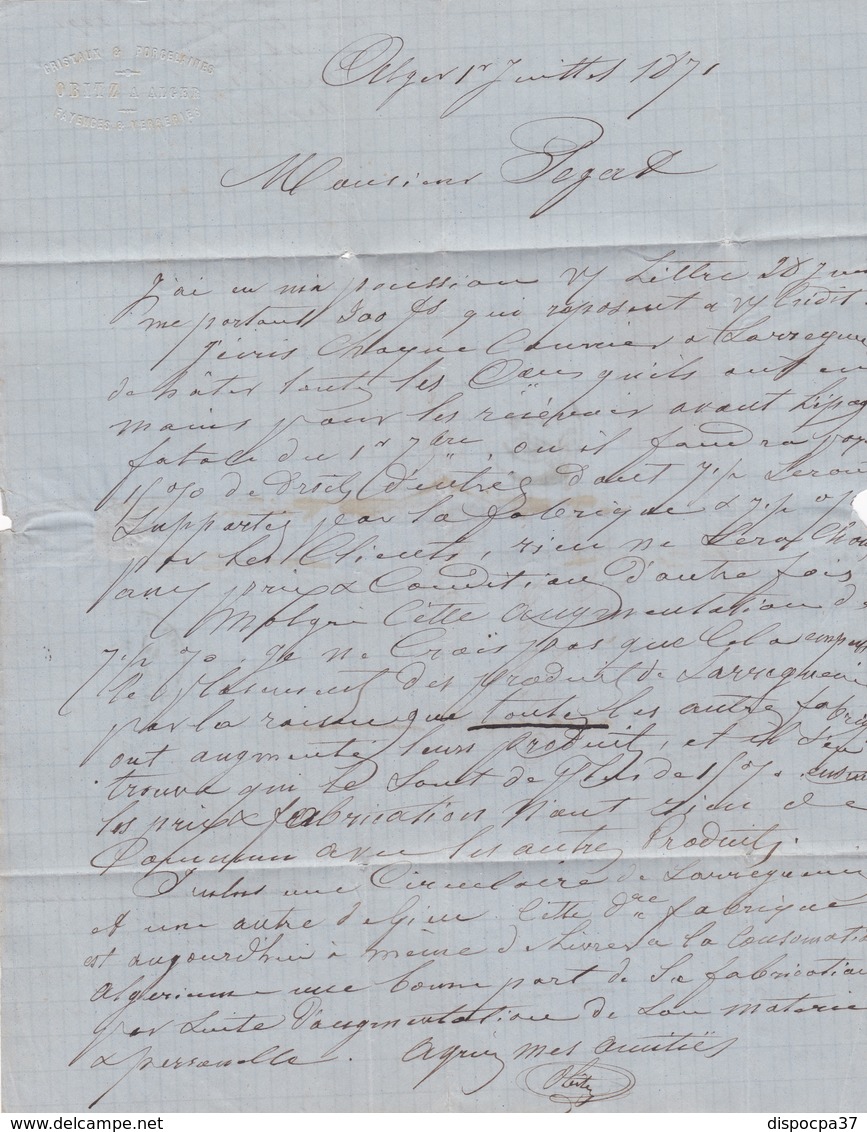 CRISTAUX & PORCELAINES
OBITZ A ALGER
FAYENCES & VERRERIES
Alger 1r Juillet 1871
Monsieur Pegat
J'ai en ma possession Vj Lettre 28 Juin
me portant 300 fs qui reposent a Vj Crédit
J'écris Chaque Courrier a Sarreguem
de hâter toutes les qu'ils ont en
mains pour les réserver avant
fatale du 1r 7bre, ou il faudra pay
15 % de Droits d'entrée dont 7 ½ Seront
Supportés par la fabrique & 7 ½ %
par les Clients, rien ne Sera Chan
aux prix & Condition d'autre fois
Malgré Cette augmentation de
7 ½ %, je ne Crois pas que Cela
le placement des produits de Sarreguemi
par la raison que toutes les autre fabriq
ont augmenté leurs produits, et il S'en
trouve qui le Sont de plus de 15 %.
les prix & fabrication n'ont rien de
Commun avec les autres Produits.
une Circulaire de Sarreguemi
et une autre de Gien Cette dre fabrique
est aujourd'hui à même de livrer a la Consomatio
Algerienne une bonne part de Sa fabrication
par Suite d'augmentation de Son materie
& personelle. Agréez mes amitiés
Obitz
delcampe.net
dispocpa37